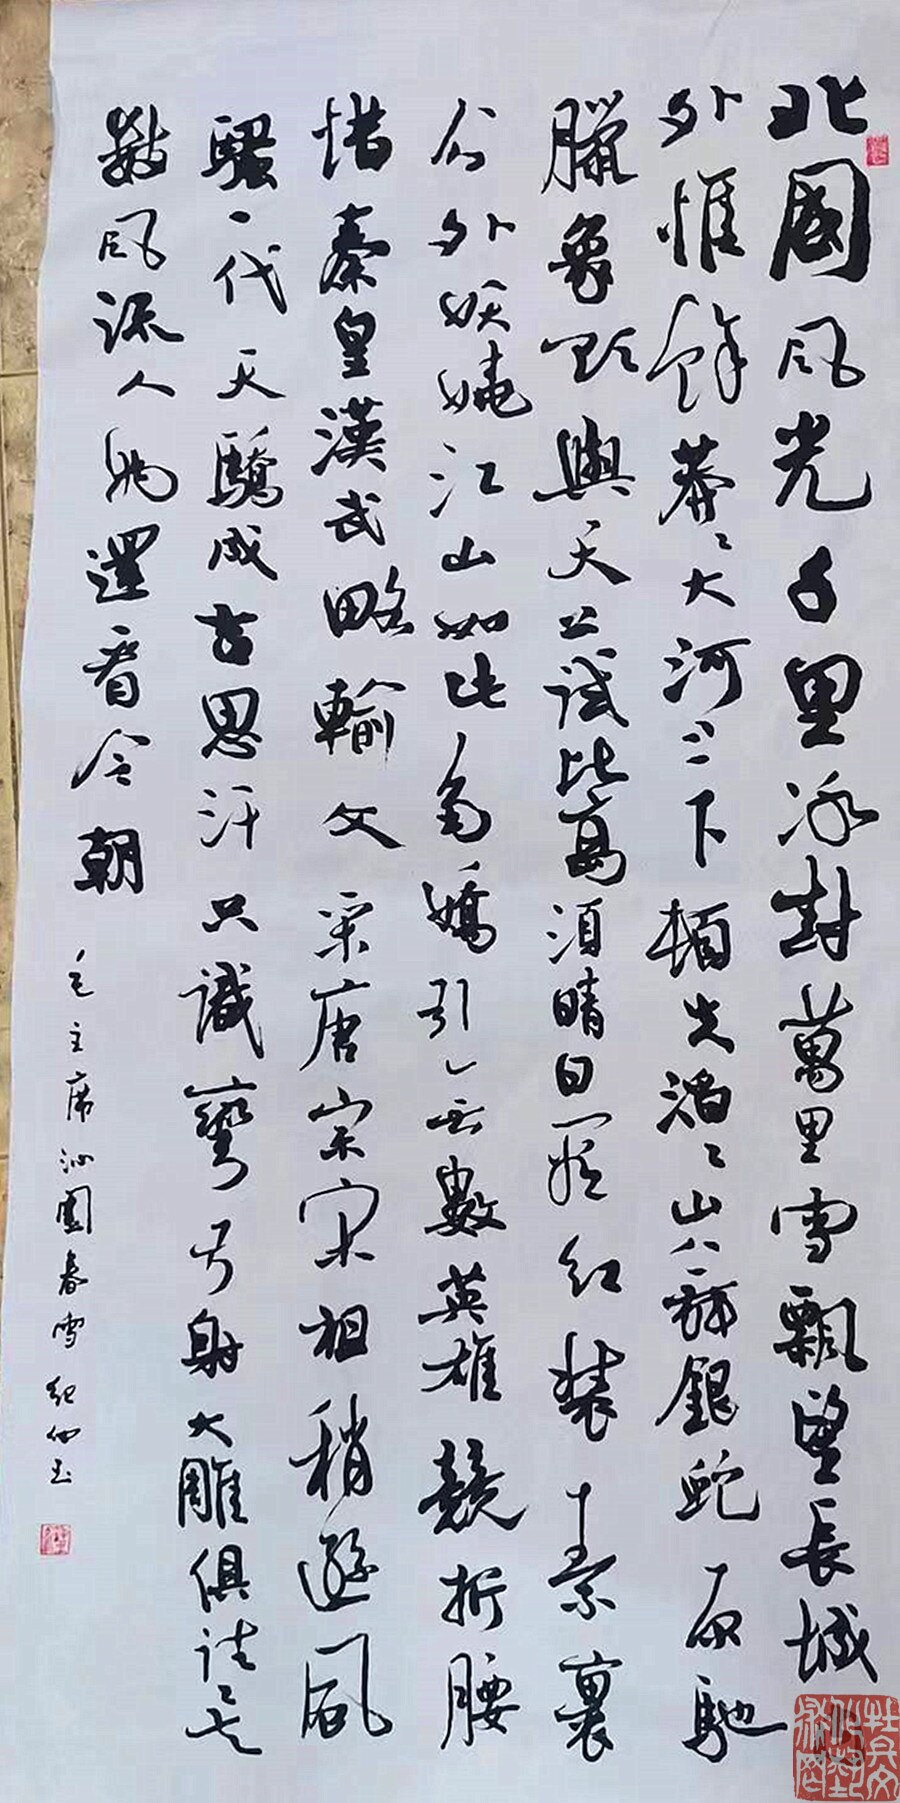 北國風光千里冰封萬里雪飄望長城
外惟餘莽々大河上下頓失滔々山舞銀蛇原馳
臘象欲與天公試比高須晴日看紅裝素裹
分外妖嬈江山如此多嬌引無數英雄競折腰
惜秦皇漢武略輸文采唐宗宋祖稍遜風
騷一代天驕成吉思汗只識彎弓射大雕俱往矣
數風流人物還看今朝
毛主席沁園春雪